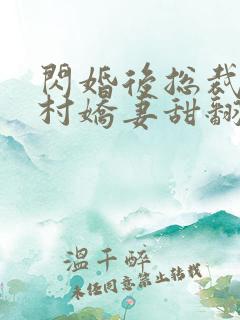 閃婚後总裁
村嬌妻甜翻
溫千醉
未经同意禁止转载